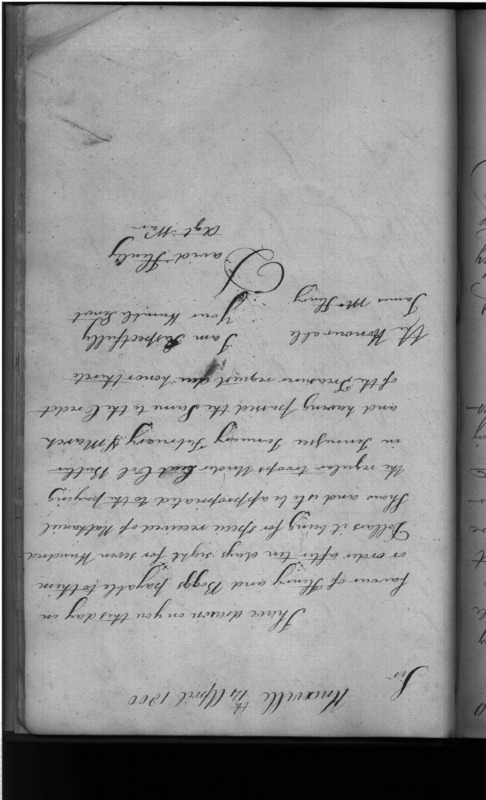 Knoxville 15th April 1800
Sir
I have drawn on you this day in
favour of Henry and Boggs payable to them
or order after ten days sight for seven Hundred
Dollars it being for specie received of Nathaniel
and to be appropriated to the paying
the regular troops under Col. Butler
in Tennessee January February & March
and having passed the Same to the Credit
of the Treasurer request due honor thereto
I am Respectfully
Your Humble Servt
The Honourable
James McHenry
David Henley
Agt. War